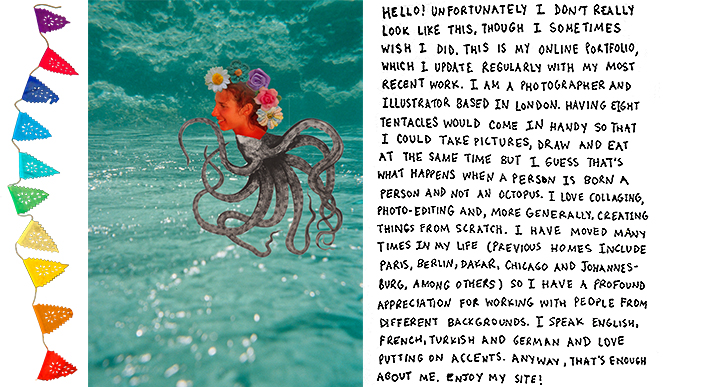 HELLO! UNFORTUNATELY I DON'T REALLY
LOOK LIKE THIS, THOUGH I SOMETIMES
WISH I DID. THIS IS MY ONLINE PORTFOLIO,
WHICH I UPDATE REGULARLY WITH MY MOST
RECENT WORK. I AM A PHOTOGRAPHER AND
ILLUSTRATOR BASED IN LONDON. HAVING EIGHT
TENTACLES WOULD COME IN HANDY SO THAT
I COULD TAKE PICTURES, DRAW AND EAT
AT THE SAME TIME BUT I GUESS THAT'S
WHAT HAPPENS WHEN A PERSON IS BORN A
PERSON AND NOT AN OCTOPUS. I LOVE COLLAGING,
PHOTO-EDITING AND, MORE GENERALLY, CREATING
THINGS FROM SCRATCH. I HAVE MOVED MANY
TIMES IN MY LIFE (PREVIOUS HOMES INCLUDE
PARIS, BERLIN, DAKAR, CHICAGO AND JOHANNES-
BURG, AMONG OTHERS) SO I HAVE A PROFOUND
APPRECIATION FOR WORKING WITH PEOPLE FROM
DIFFERENT BACKGROUNDS. I SPEAK ENGLISH,
FRENCH, TURKISH AND GERMAN AND LOVE
PUTTING ON ACCENTS. ANYWAY, THAT'S ENOUGH
ABOUT ME. ENJOY MY SITE!